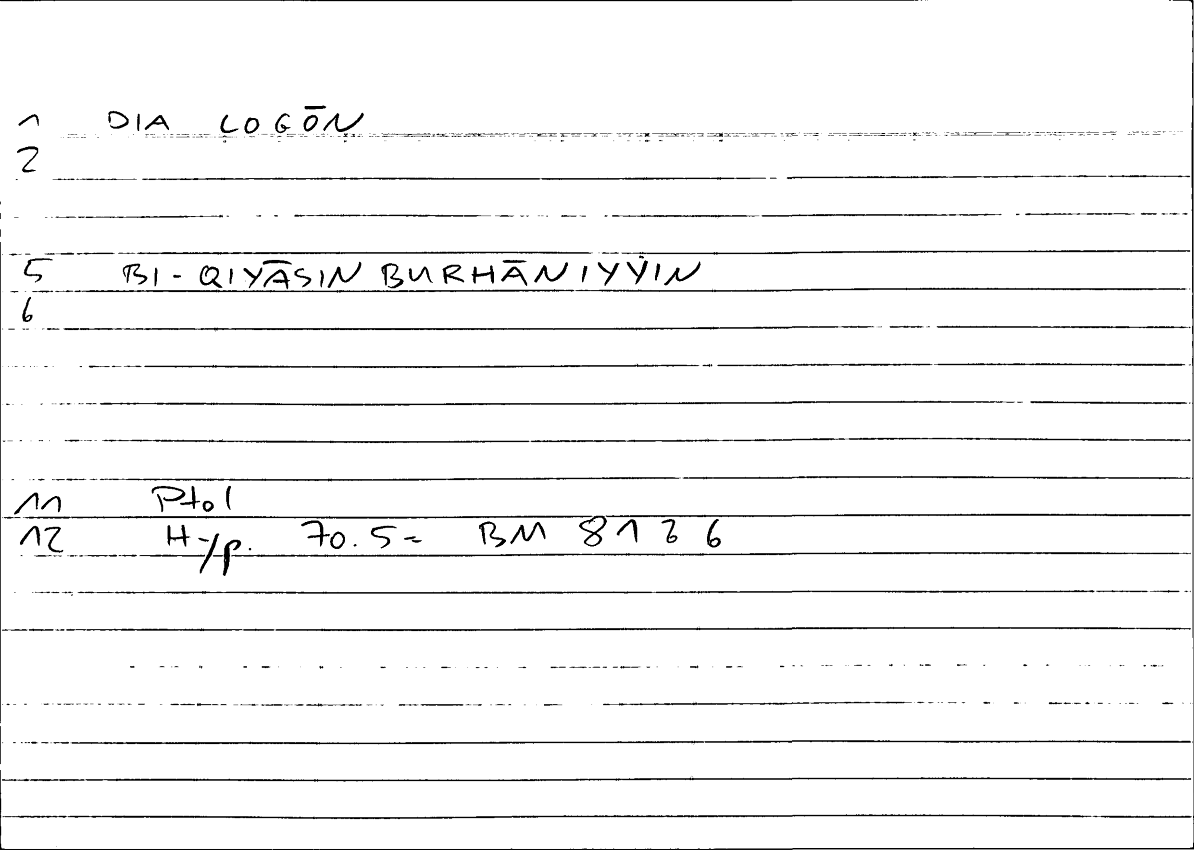 1 DIA LOGŌN
2
5 BI-QIYĀSIN BURHĀNIYYIN
6
11 Ptol
12 Hyp. 70.5 = BM 81 26